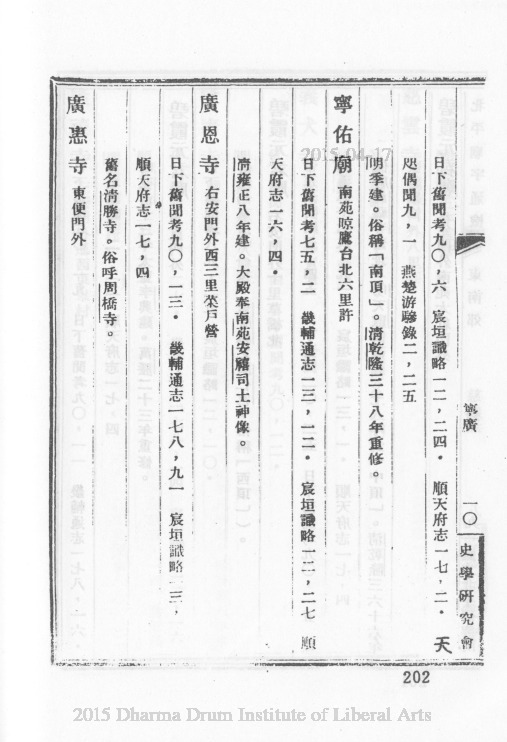 日下舊聞考九〇，六　宸垣識略一二，二四．　順天府志一七，二．　天
咫偶聞九，一　燕楚游驂錄二，二五
明季建。俗稱「南頂」。清乾隆三十八年重修。
寧佑廟　南苑晾鷹台北六里許
日下舊聞考七五，二　畿輔通志一三，一二．　宸垣識略一一，二七　順
天府志一六，四．
清雍正八年建。大殿奉南苑安禧司土神像。
廣恩寺　右安門外西三里菜戶營
日下舊聞考九〇，一三．　畿輔通志一七八，九一　宸垣識略一三，
順天府志一七，四
舊名清勝寺。俗呼周橋寺。
廣惠寺　東便門外
寧廣
一〇
史學研究會
202
2015-04-17
2015 Dharma Drum Institute of Liberal Arts